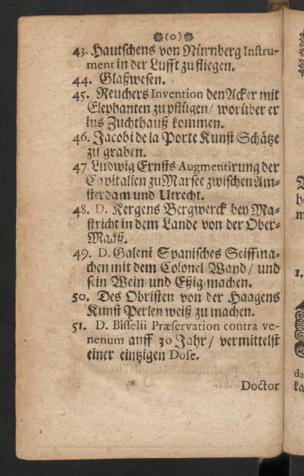 (o)
43. Hautschens von Nürnberg Instru-
ment in der Lufft zu fliegen.
44. Glaßwesen.
45. Reuchers Invention den Acker mit
Elephanten zu pflügen / worüber er
ins Zuchthauß kommen.
46. Jacobi de la Porte Kunst Schätze
zu graben.
47. Ludwig Ernsts Augmentirung der
Capitalien zu Marsee zwischen Am-
sterdam und Utrecht.
48. D. Kergens Bergwerck bey Ma-
stricht in dem Lande von der Ober-
Maaß.
49. D. Galeni Spanisches Seiffma-
chen mit dem Colonel Wayd / und
sein Wein und Eßig machen.
50. Des Obristen von der Haagens
Kunst Perlen weiß zu machen.
51. D. Bisselii Præservation contra ve-
nenum auff 30 Jahr / vermittelst
einer eintzigen Dose.
Doctor